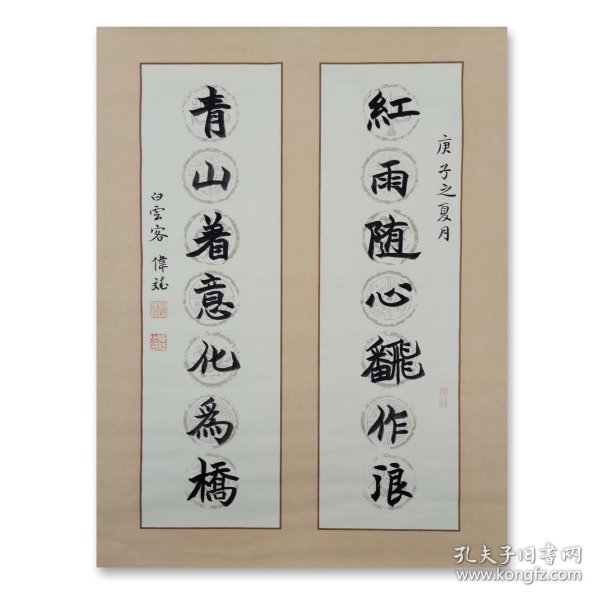 庚子之夏月
紅雨随心翻作浪
青山着意化為橋
白雲客 偉斌
孔夫子旧书网
www.kongfz.com